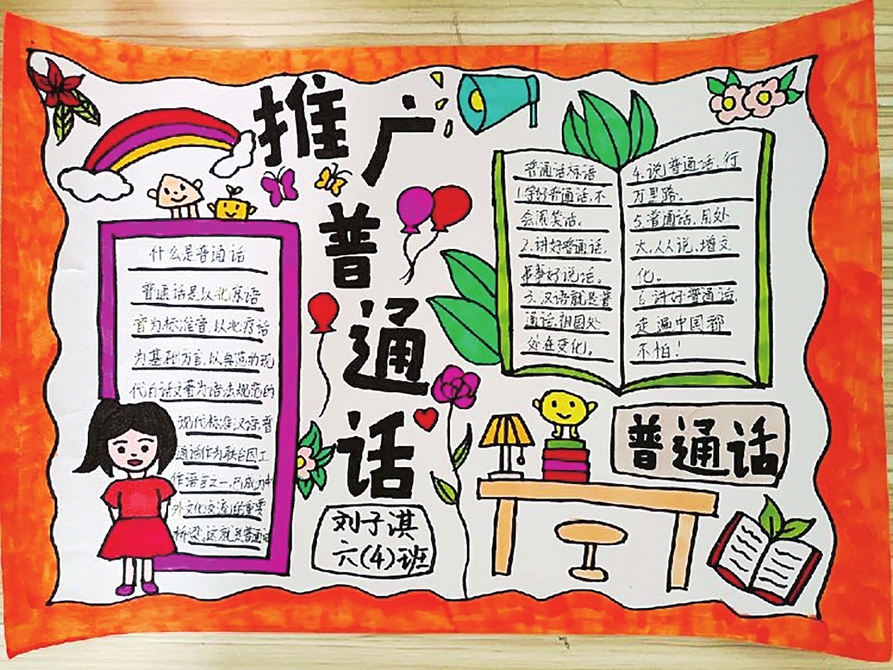 推广
普
通
话
什么是普通话
普通话是以北京语
音为标准音,以北方话
为基础方言,以典范的现
代白话文著为语法规范的
现代标准汉语普
通话作为联合国工
作语言之一,已成为中
外文化交流的重要
桥梁,这就是普通话
刘子淇
六(4)班
普通话标语
1.学好普通话,不
会闹笑话。
2.讲好普通话,
事事好说话。
3.汉语就是普
通话,祖国处
处在变化。
4.说普通话,行
万里路。
5.普通话,用处
大,人人说,增文
化。
6.讲好普通话,
走遍中国都
不怕!
普通话